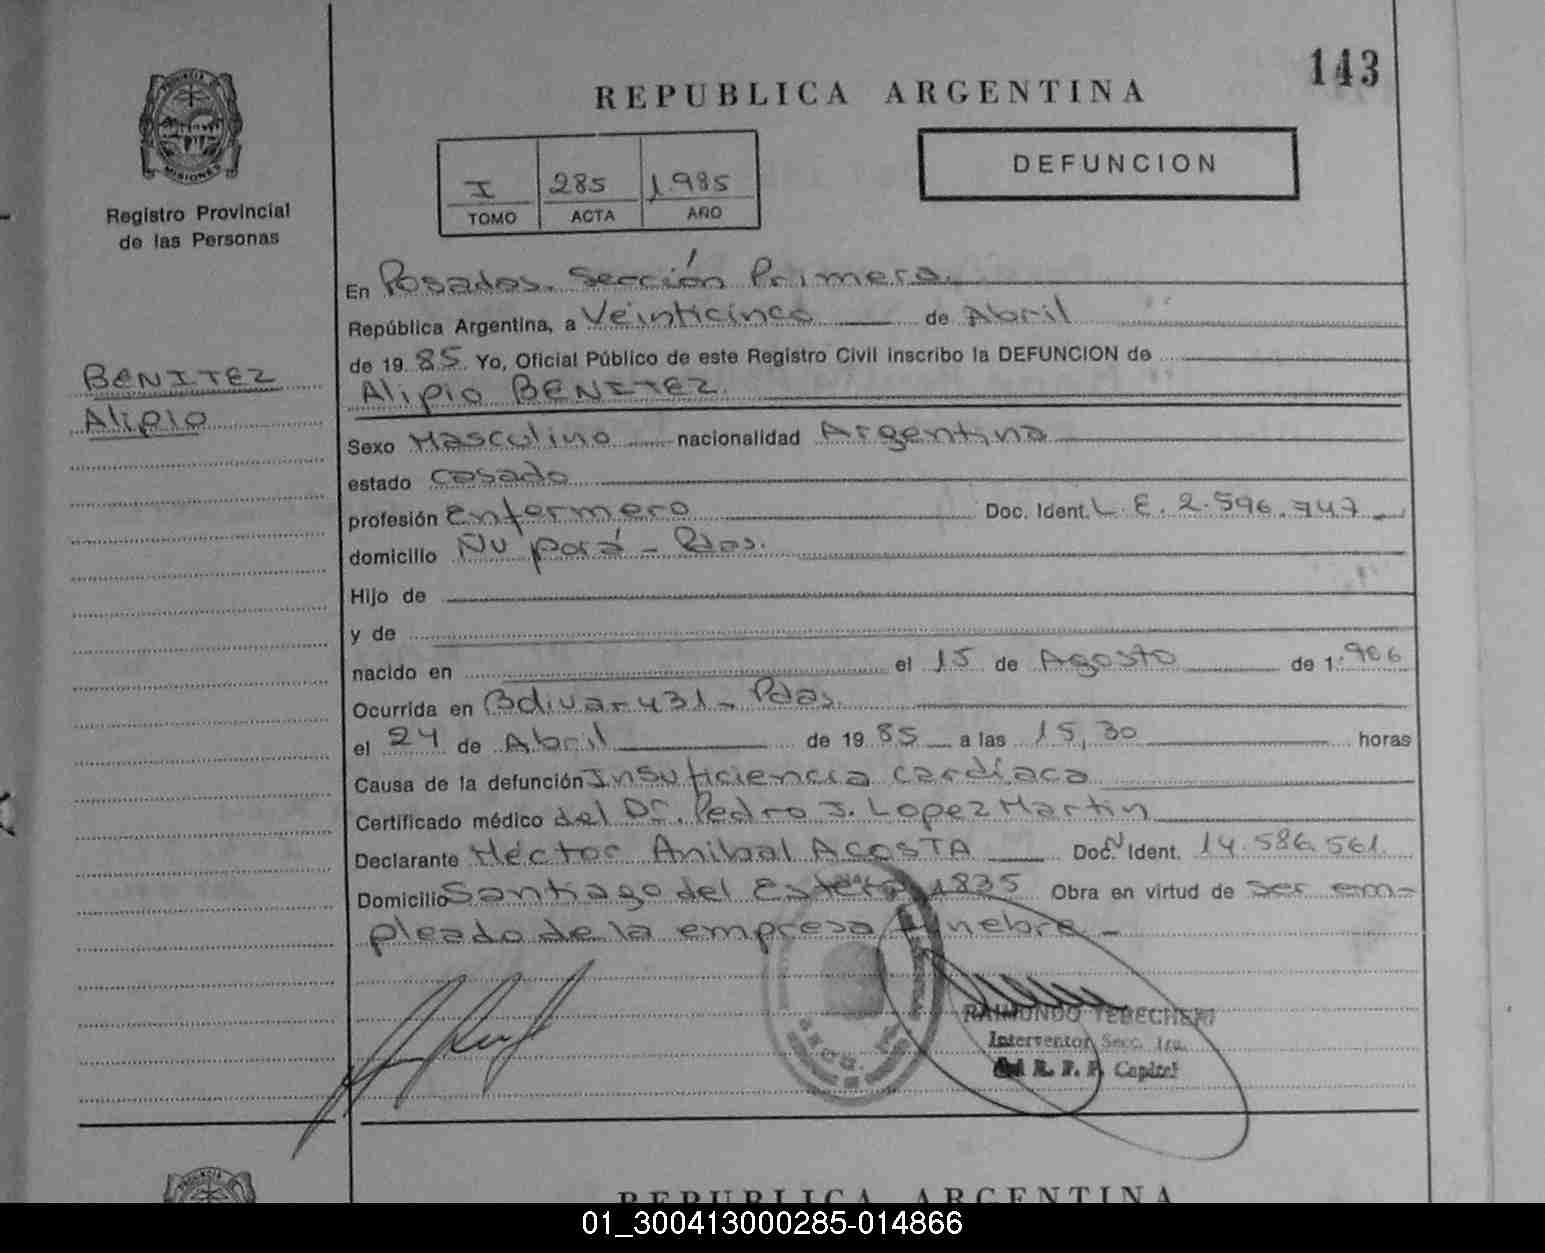 143
REPUBLICA ARGENTINA
PROVINCIA
MISIONES
Registro Provincial
de las Personas
I 285 1.985
TOMO ACTA AÑO
DEFUNCION
BENITEZ
Alipio
En Posadas. Sección Primera.
República Argentina, a Veinticinco de Abril
de 19 85. Yo, Oficial Público de este Registro Civil inscribo la DEFUNCION de
Alipio BENITEZ.
Sexo Masculino nacionalidad Argentina
estado casado
profesión enfermero Doc. Ident. L.E. 2.596.747
domicilio Ñu porá - Pdas.
Hijo de
y de
nacido en el 15 de Agosto de 1.906
Ocurrida en Bolivar 431 - Pdas.
el 24 de Abril de 19 85 a las 15,30 horas
Causa de la defunción Insuficiencia cardíaca
Certificado médico del Dr. Pedro J. Lopez Martin
Declarante Héctor Anibal ACOSTA Doc. N Ident. 14.586.561.
Domicilio Santiago del Estero 1835 Obra en virtud de ser em-
pleado de la empresa funebre -
RAIMUNDO TEBECHERI
Interventor Secc. 1ra.
del R. P. P. Capital
PROVINCIA
REPUBLICA ARGENTINA
01_300413000285-014866